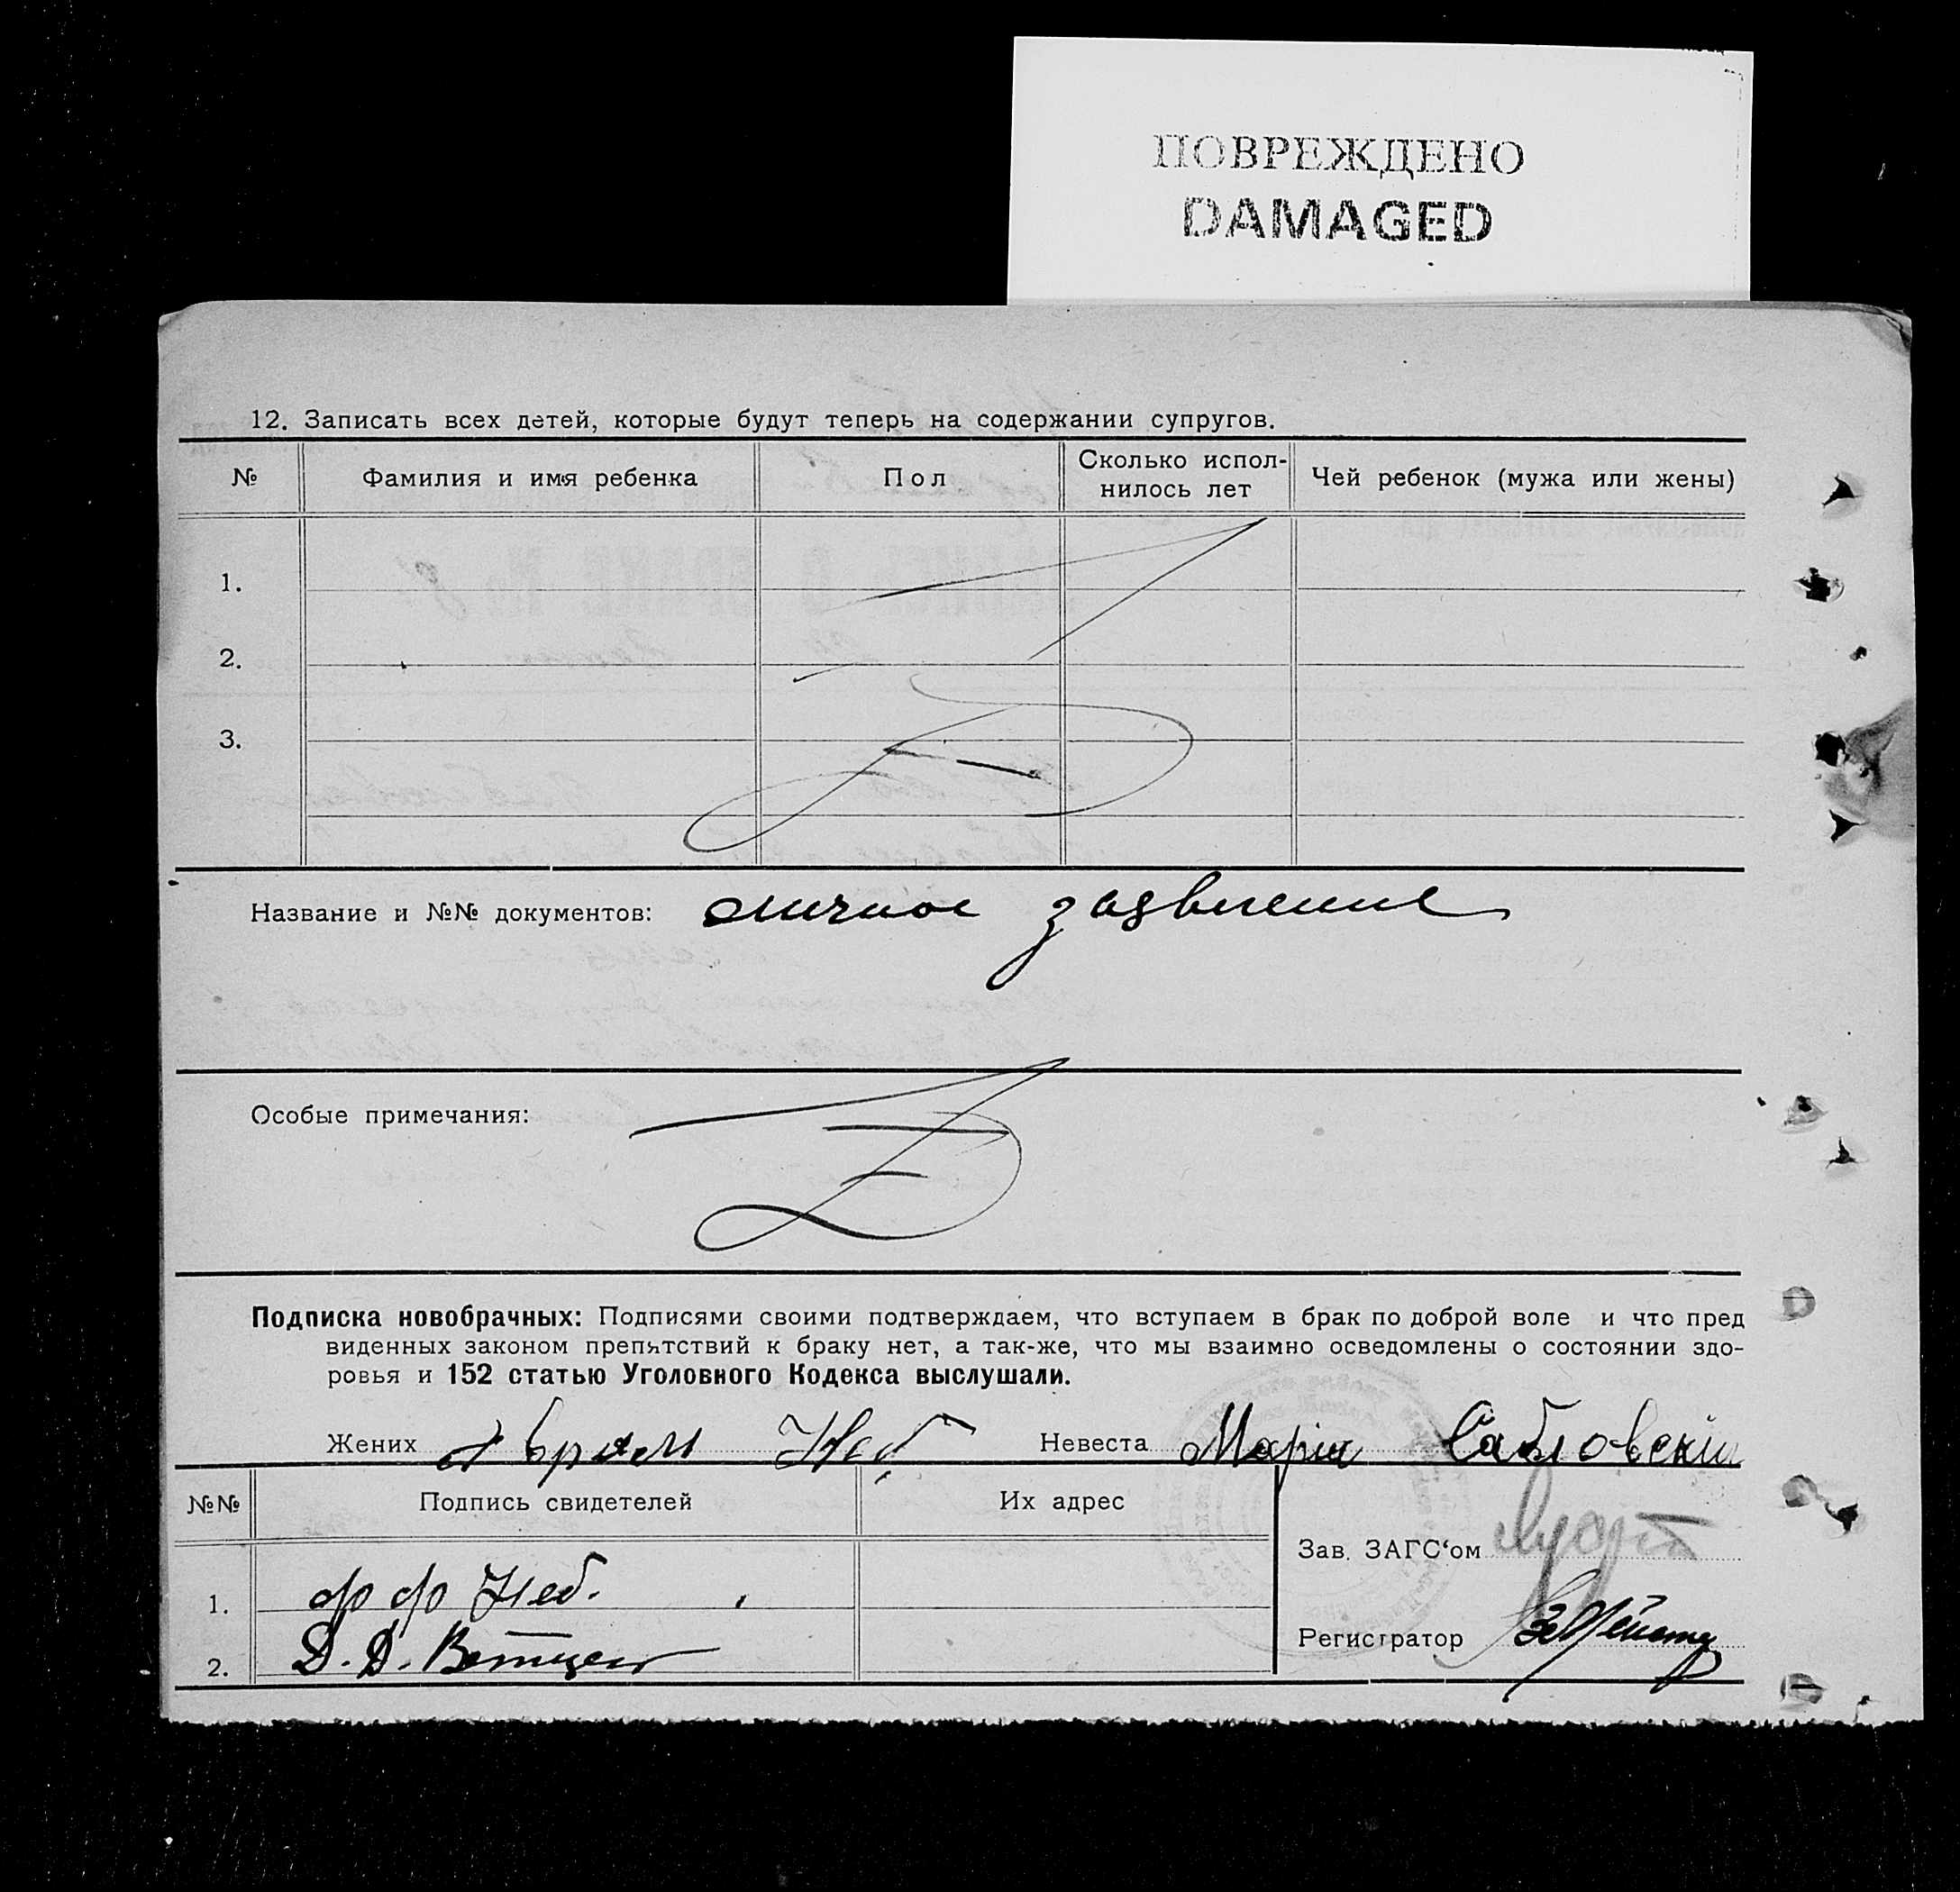 ПОВРЕЖДЕНО
DAMAGED
12. Записать всех детей, которые будут теперь на содержании супругов.
№ Фамилия и имя ребенка Пол Сколько испол-нилось лет Чей ребенок (мужа или жены)
1.
2.
3.
Название и №№ документов: личное заявление
Особые примечания:
Подписка новобрачных: Подписями своими подтверждаем, что вступаем в брак по доброй воле и что пред
виденных законом препятствий к браку нет, а так-же, что мы взаимно осведомлены о состоянии здо-
ровья и 152 статью Уголовного Кодекса выслушали.
Жених Аврам Невеста Марія
№№ Подпись свидетелей Их адрес
Зав. ЗАГС‘ом
1.
Регистратор
2. Д. Д.